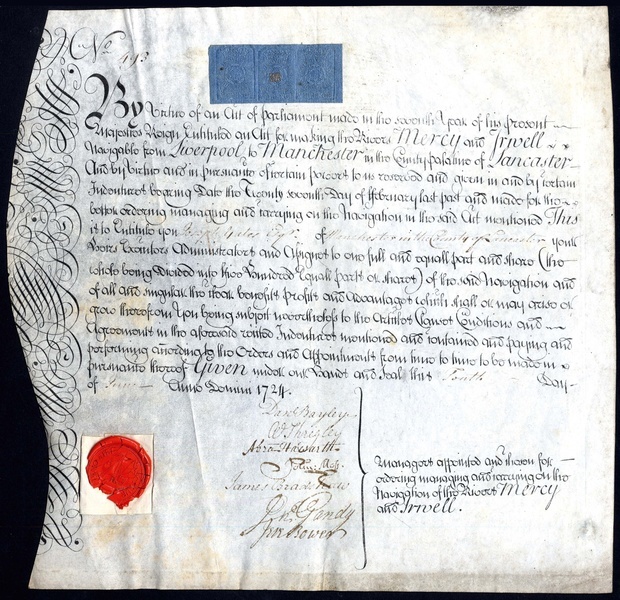 No 493
By Virtue of an Act of parliament made in the seventh Year of his present
Majesties Reign Entituled an Act for making the Rivers Mercy and Irwell
Navigable from Liverpool to Manchester in the County palatine of Lancaster
And by virtue and in pursuance of certain powers to us reserved and given in and by certain
Indentures bearing Date the Twenty seventh Day of ffebruary last past and made for the
better ordering managing and carrying on the Navigation in the said Act mentioned This
is to Entitule you Esqr of Manchester in the County of Lancaster your
Heirs Executors Administrators and Assignes to one full and equall part and share (the
whole being divided into five Hundred Equall parts or shares) of the said Navigation and
of all and singular the stock benefits profits and Advantages which shall or may arise or
grow therefrom You being subject nevertheless to the Conditions and
Agreements in the aforesaid recited Indentures mentioned and contained and paying and
performing according to the Orders and Appointments from time to time to be made in
pursuance thereof Given under our Hands and Seal this Tenth Day
of June Anno Domini 1724.
Danl Bayley
James Bradshaw
Jno Gandy
Managers appointed and chosen for
ordering managing and carrying on the
Navigation of the Rivers Mercy
and Irwell.